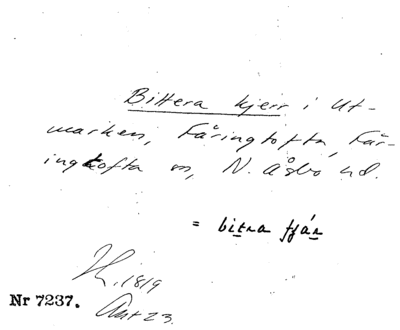 Bittera kjerr i Ut-
marken, Färingtofta, Fär-
ingtofta sn, N. Åsbo hd.
= bitra fjár
H. 1819
Nr 7237.
23.